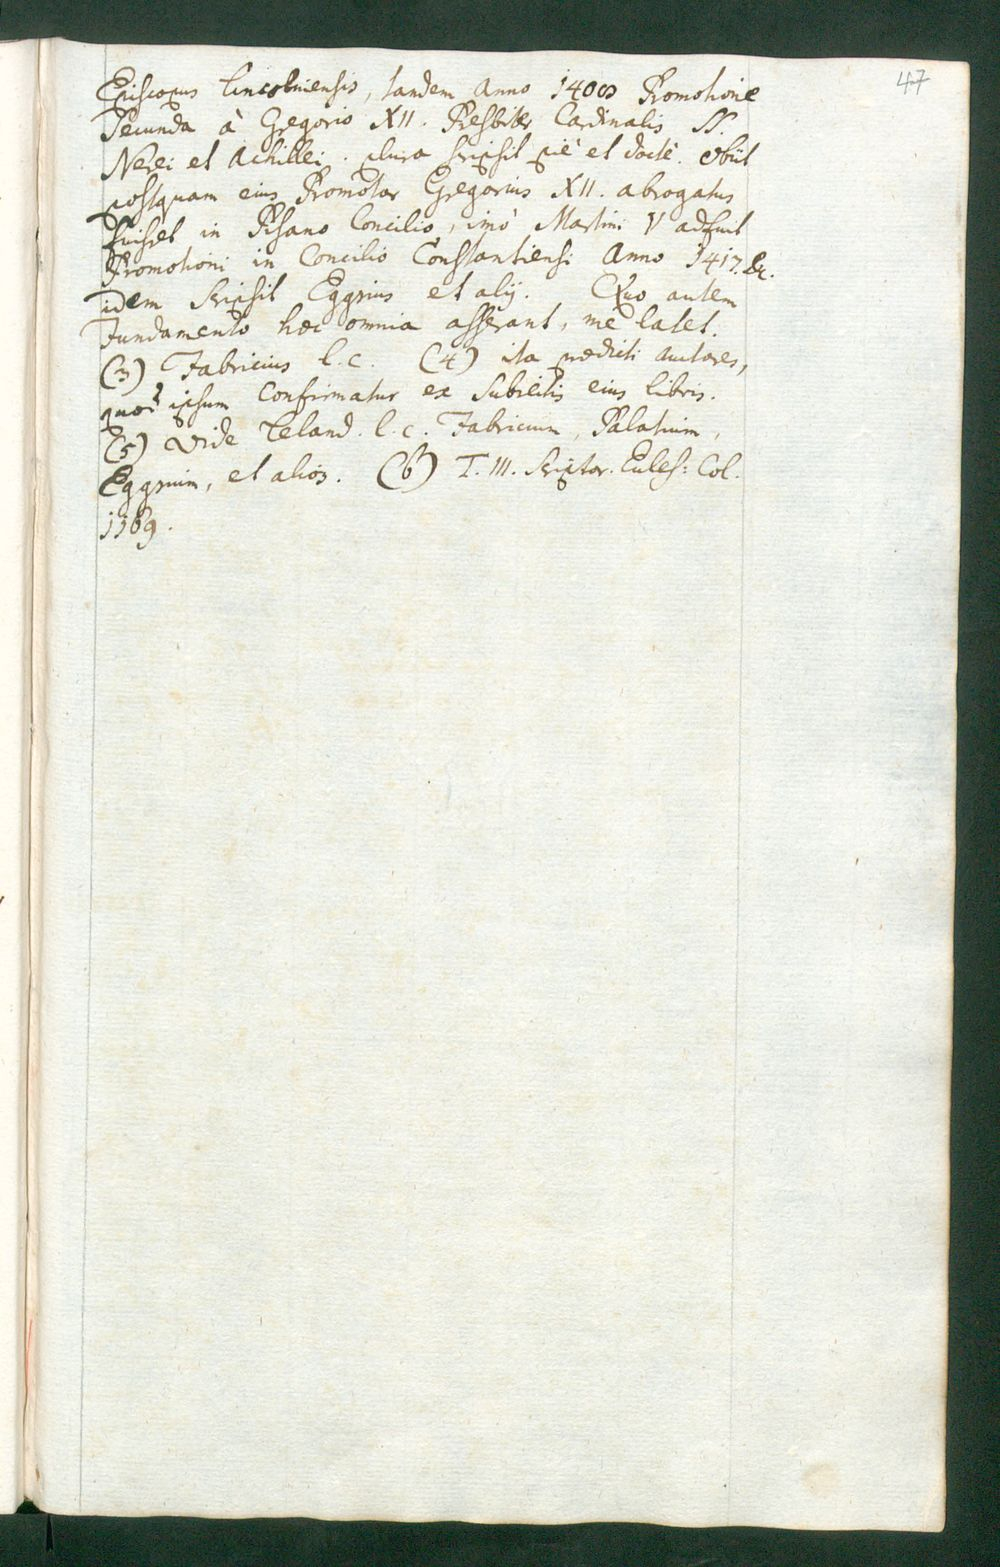 47
Episcopus Lincolniensis, tandem Anno 1408 Promotione
Secunda à Gregorio XII. Presbiter Cardinalis SS.
Nerei et Achillei. plura scripsit piè et doctè. Obiit
postquam eius Promotor Gregorius XII. abrogatus
fuisset in Pisano Concilio, imò Martini V adfuit
Promotioni in Concilio Constantiensi Anno 1417. &c.
idem scripsit Eggsius et alij. Quo autem
Fundamento hoc omnia asserant, me latet.
(3) Fabricius l. c. (4) ita prædicti Auctores,
quod ipsum Confirmatur ex Subiectis eius libris.
(5) Vide Leland. l. c. Fabricium, Palatium,
Eggsium, et alios. (6) T. III. Scriptor. Eccles: Col.
1169.